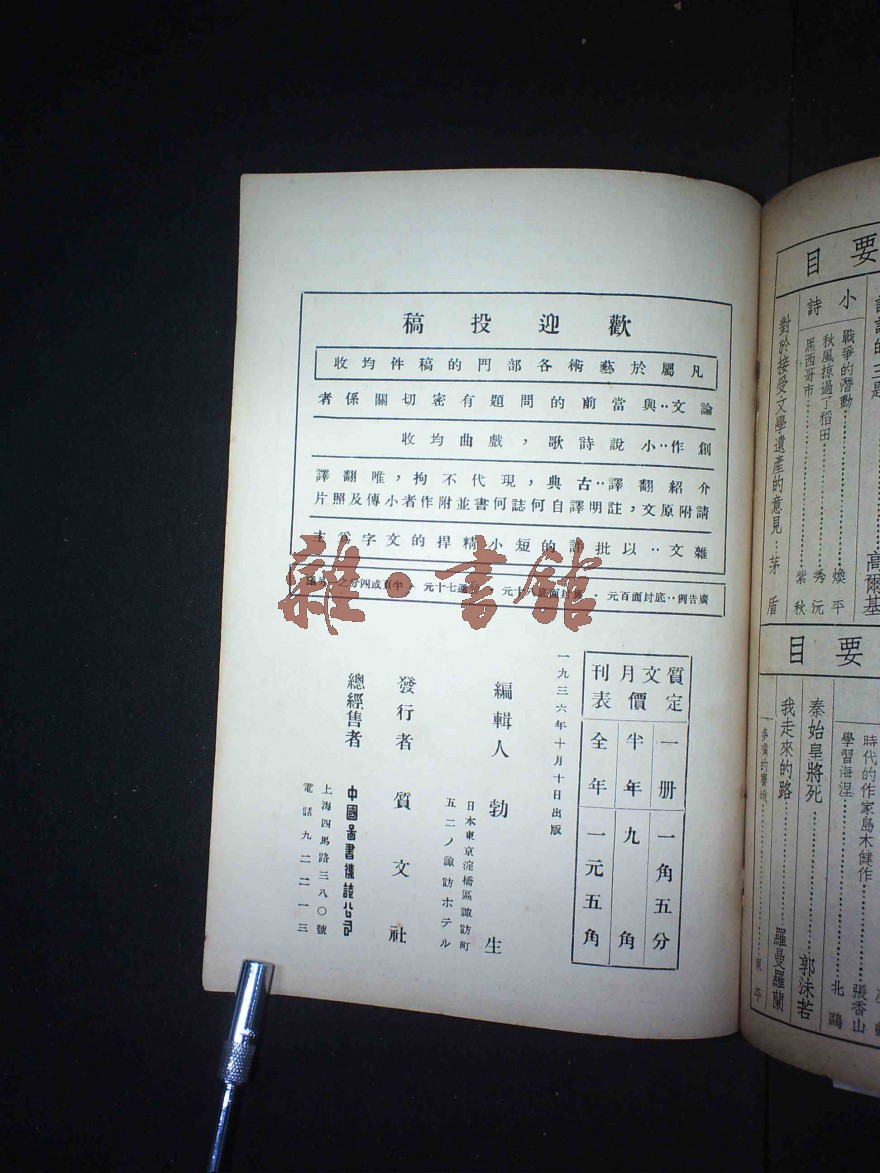 歡迎投稿
凡屬於藝術各部門的稿件均收
論文‥與當前的問題有密切關係者
創作‥小說詩歌，戲曲均收
介紹翻譯‥古典，現代不拘，唯翻譯
請附原文，註明譯自何誌何書並附作者小傳及照片
雜文‥以批評的短小精悍的文字爲主
廣告例‥底封面百元．封面底八十元．普通七十元．半頁或四分之一
雜·書館
質文月刊
定價表
一册 一角五分
半年 九角
全年 一元五角
一九三六年十月十日出版
編輯人 勃生
日本東京淀橋區諏訪町
五二ノ諏訪ホテル
發行者 質文社
總經售者 中國圖書雜誌公司
上海四馬路三八〇號
電話九二二一三
要目
高爾基
對於接受文學遺產的意見‥茅盾
小
戰爭的潛動 煥平
詩
秋風掠過了稻田 秀沅
馬西哥市 紫秋
要目
時代的作家島木健作 張香山
學習海涅 北鷗
秦始皇將死 郭沫若
我走來的路 羅曼羅蘭
東平